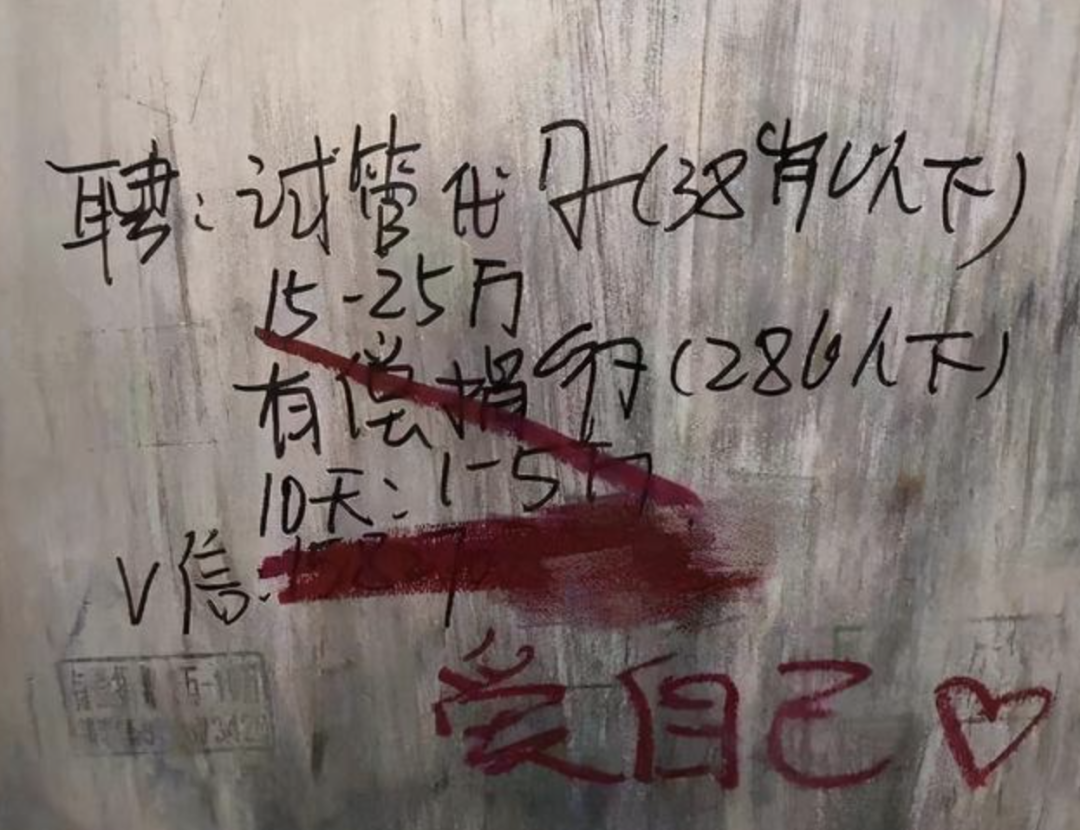 聘：试管代孕(38岁以下)
15-25万
有偿捐卵(28以下)
10天：1-5万
V信:
爱自己♡